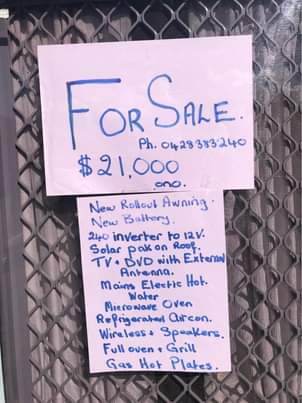 FOR SALE.
Ph. 0428383240
$21,000
ono.
New Rollout Awning.
New Battery.
240 inverter to 12V.
Solar pak on Roof.
TV + DVD with External
Antenna.
Mains Electic Hot.
Water
Microwave Oven
Refrigerated Aircon.
Wireless + Speakers.
Full oven + Grill
Gas Hot Plates.